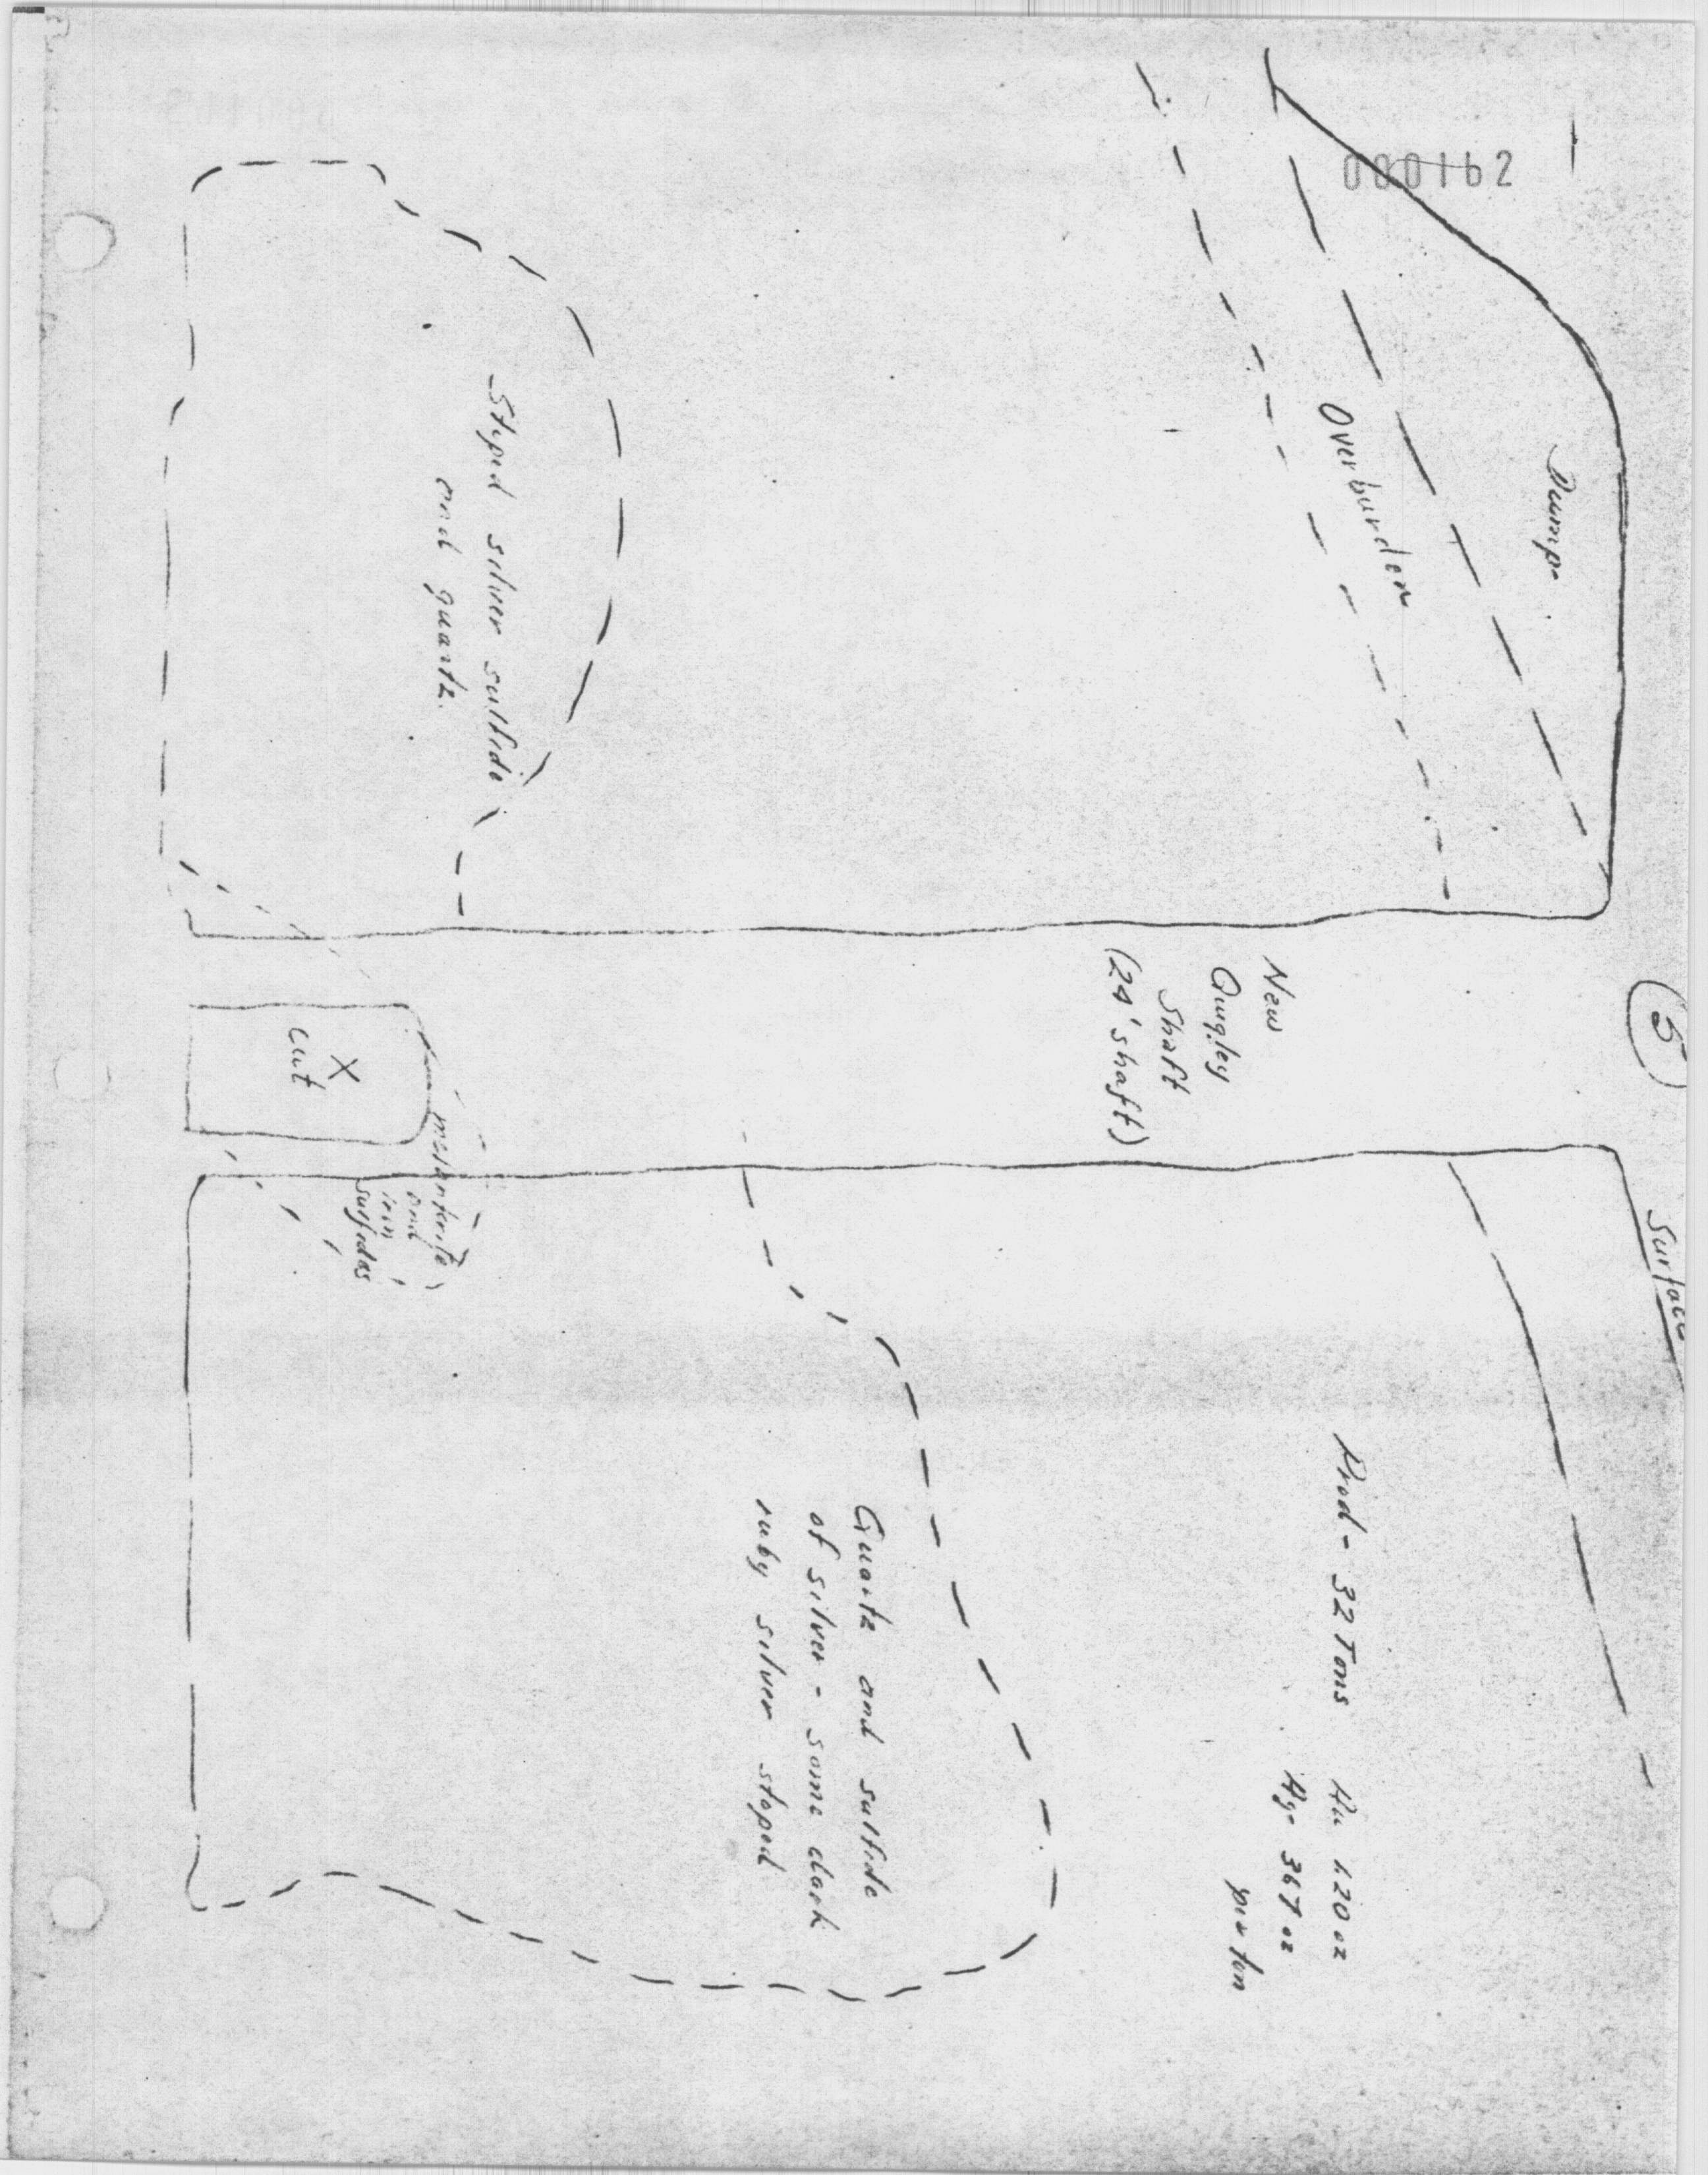 000162
5
Surface
Dump
Overburden
New
Quigley
Shaft
(24' shaft)
Prod - 32 Tons Au 1.20 oz
Ag - 367 oz
per ton
Stoped silver sulfide
and quartz.
Quartz and sulfide
of silver - some dark
ruby silver stoped
X
cut
melanterite
and
iron